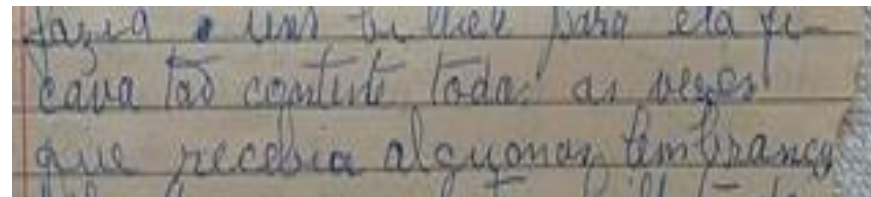 fazia uns bilhete para ela fi-
cava tão contente todas as vezes
que recebia alguomas lembrança